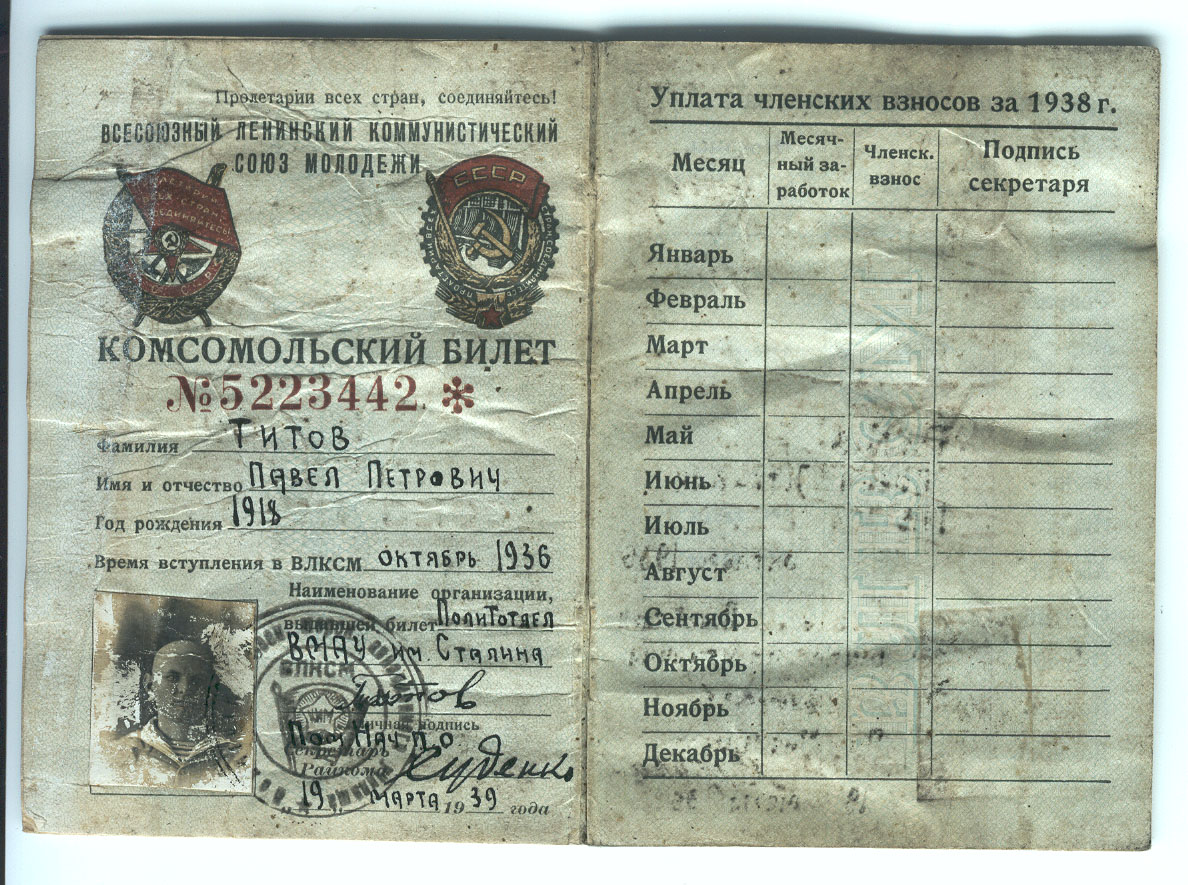 Пролетарии всех стран, соединяйтесь!
ВСЕСОЮЗНЫЙ ЛЕНИНСКИЙ КОММУНИСТИЧЕСКИЙ
СОЮЗ МОЛОДЕЖИ
СССР
КОМСОМОЛЬСКИЙ БИЛЕТ
№5223442 *
Фамилия ТИТОВ
Имя и отчество ПАВЕЛ ПЕТРОВИЧ
Год рождения 1918
Время вступления в ВЛКСМ ОКТЯБРЬ 1936
Наименование организации,
выдавшей билет ПолиТотдел
ВМАУ им. Сталина
ВЛКСМ
Титов
Личная подпись
Пом Нач ПО
Секретарь
Райкома Худенко
19 МАРТА 1939 года
Уплата членских взносов за 1938 г.
Месяц
Месяч-
ный за-
работок
Членск.
взнос
Подпись
секретаря
Январь
Февраль
Март
Апрель
Май
Июнь
Июль
Август
Сентябрь
Октябрь
Ноябрь
Декабрь